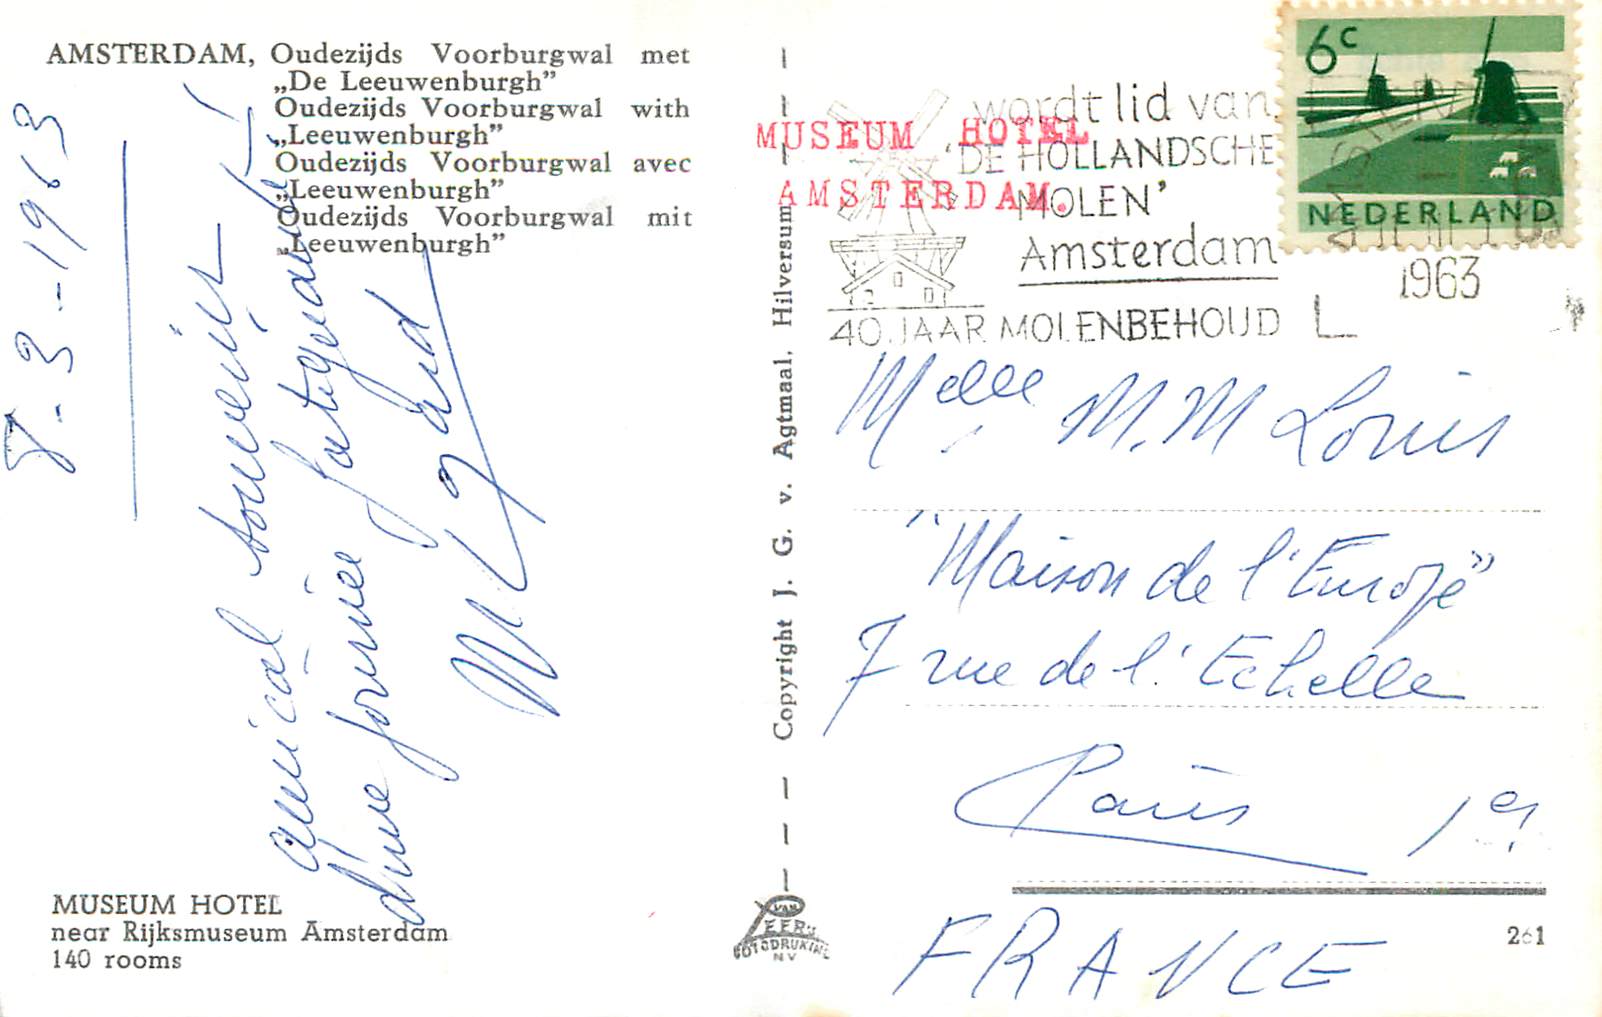 AMSTERDAM, Oudezijds Voorburgwal met
„De Leeuwenburgh”
Oudezijds Voorburgwal with
„Leeuwenburgh”
Oudezijds Voorburgwal avec
„Leeuwenburgh”
Oudezijds Voorburgwal mit
„Leeuwenburgh”
8-3-1963
amical souvenir
d'une journée
MUSEUM HOTEL
near Rijksmuseum Amsterdam
140 rooms
Copyright J. G. v. Agtmaal, Hilversum
VAN
LEER'S
FOTODRUKIND.
NV
MUSEUM HOTEL
AMSTERDAM.
wordt lid van
'DE HOLLANDSCHE
MOLEN'
Amsterdam
40 JAAR MOLENBEHOUD
6c
NEDERLAND
1963
Melle M. M Louis
"Maison de l'Europe"
7 rue de l'Echelle
Paris 1er
FRANCE
261